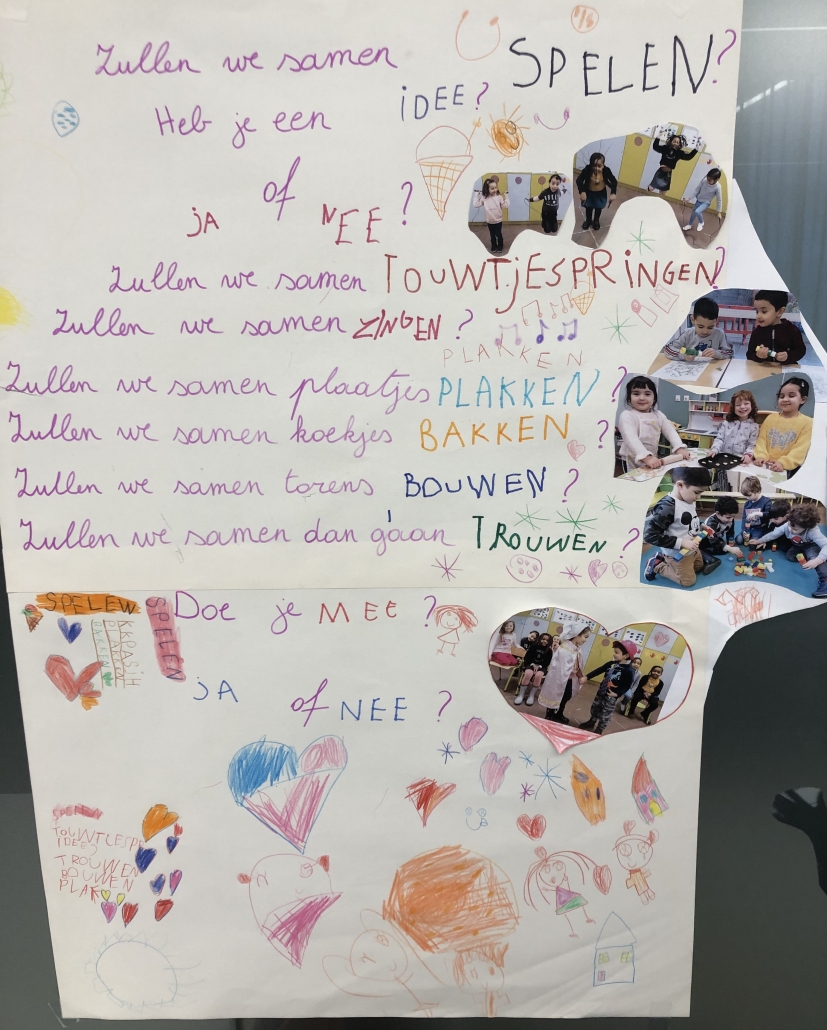 Zullen we samen SPELEN?
Heb je een iDEE?
jA of NEE?
Zullen we samen TOUWTjESPRiNGEN?
Zullen we samen ZINGEN?
PLAKKEN
Zullen we samen plaatjes PLAKKEN?
Zullen we samen koekjes BAKKEN?
Zullen we samen torens BOUWEN?
Zullen we samen dan gaan TROUWEN?
SPELEW
SPELEN
Doe je MEE?
jA of NEE?
TROUWEN
BOUWEN
PLAK